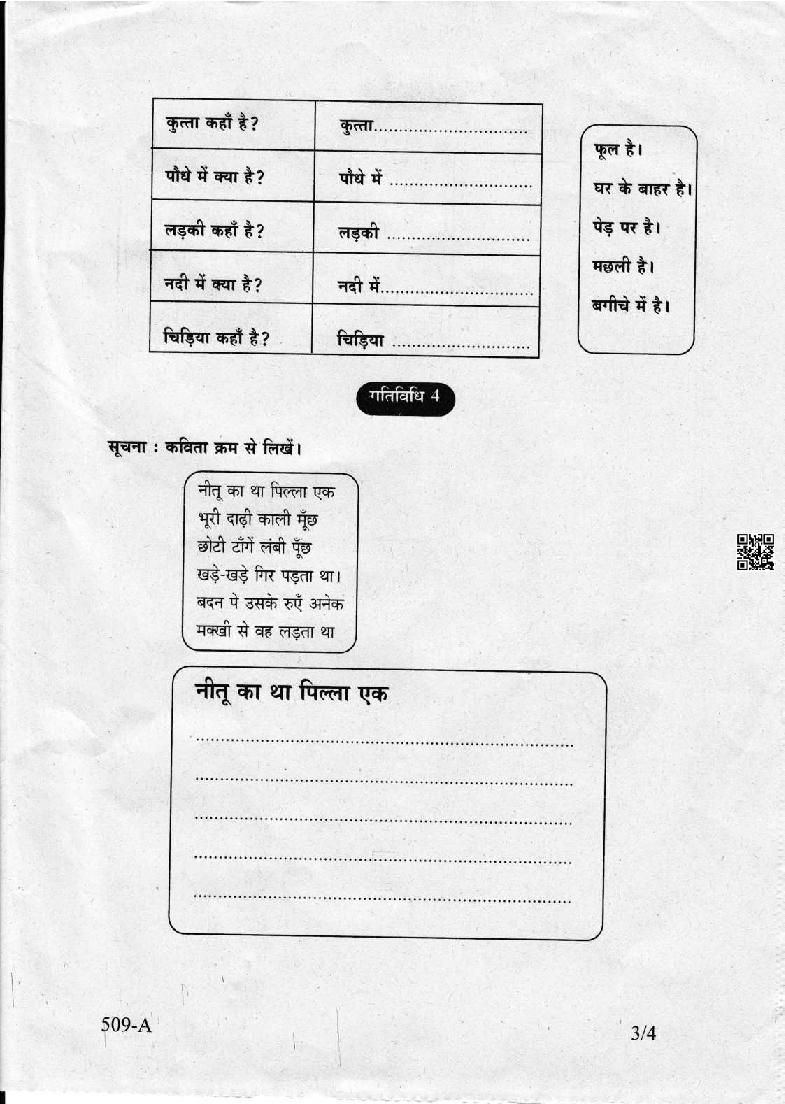 कुत्ता कहाँ है? कुत्ता..............................
पौधे में क्या है? पौधे में ...........................
लड़की कहाँ है? लड़की ...........................
नदी में क्या है? नदी में.............................
चिड़िया कहाँ है? चिड़िया ..........................
फूल है।
घर के बाहर है।
पेड़ पर है।
मछली है।
बगीचे में है।
गतिविधि 4
सूचना : कविता क्रम से लिखें।
नीतू का था पिल्ला एक
भूरी दाढ़ी काली मूँछ
छोटी टाँगें लंबी पूँछ
खड़े-खड़े गिर पड़ता था।
बदन पे उसके रुएँ अनेक
मक्खी से वह लड़ता था
नीतू का था पिल्ला एक
509-A
3/4